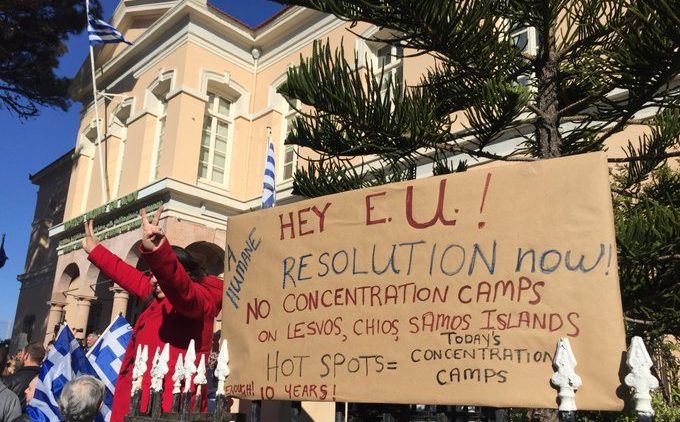 HEY E.U.!
A HUMANE
RESOLUTION NOW!
NO CONCENTRATION CAMPS
ON LESVOS, CHIOS, SAMOS ISLANDS
HOT SPOTS = TODAY'S CONCENTRATION CAMPS
ENOUGH! 10 YEARS!